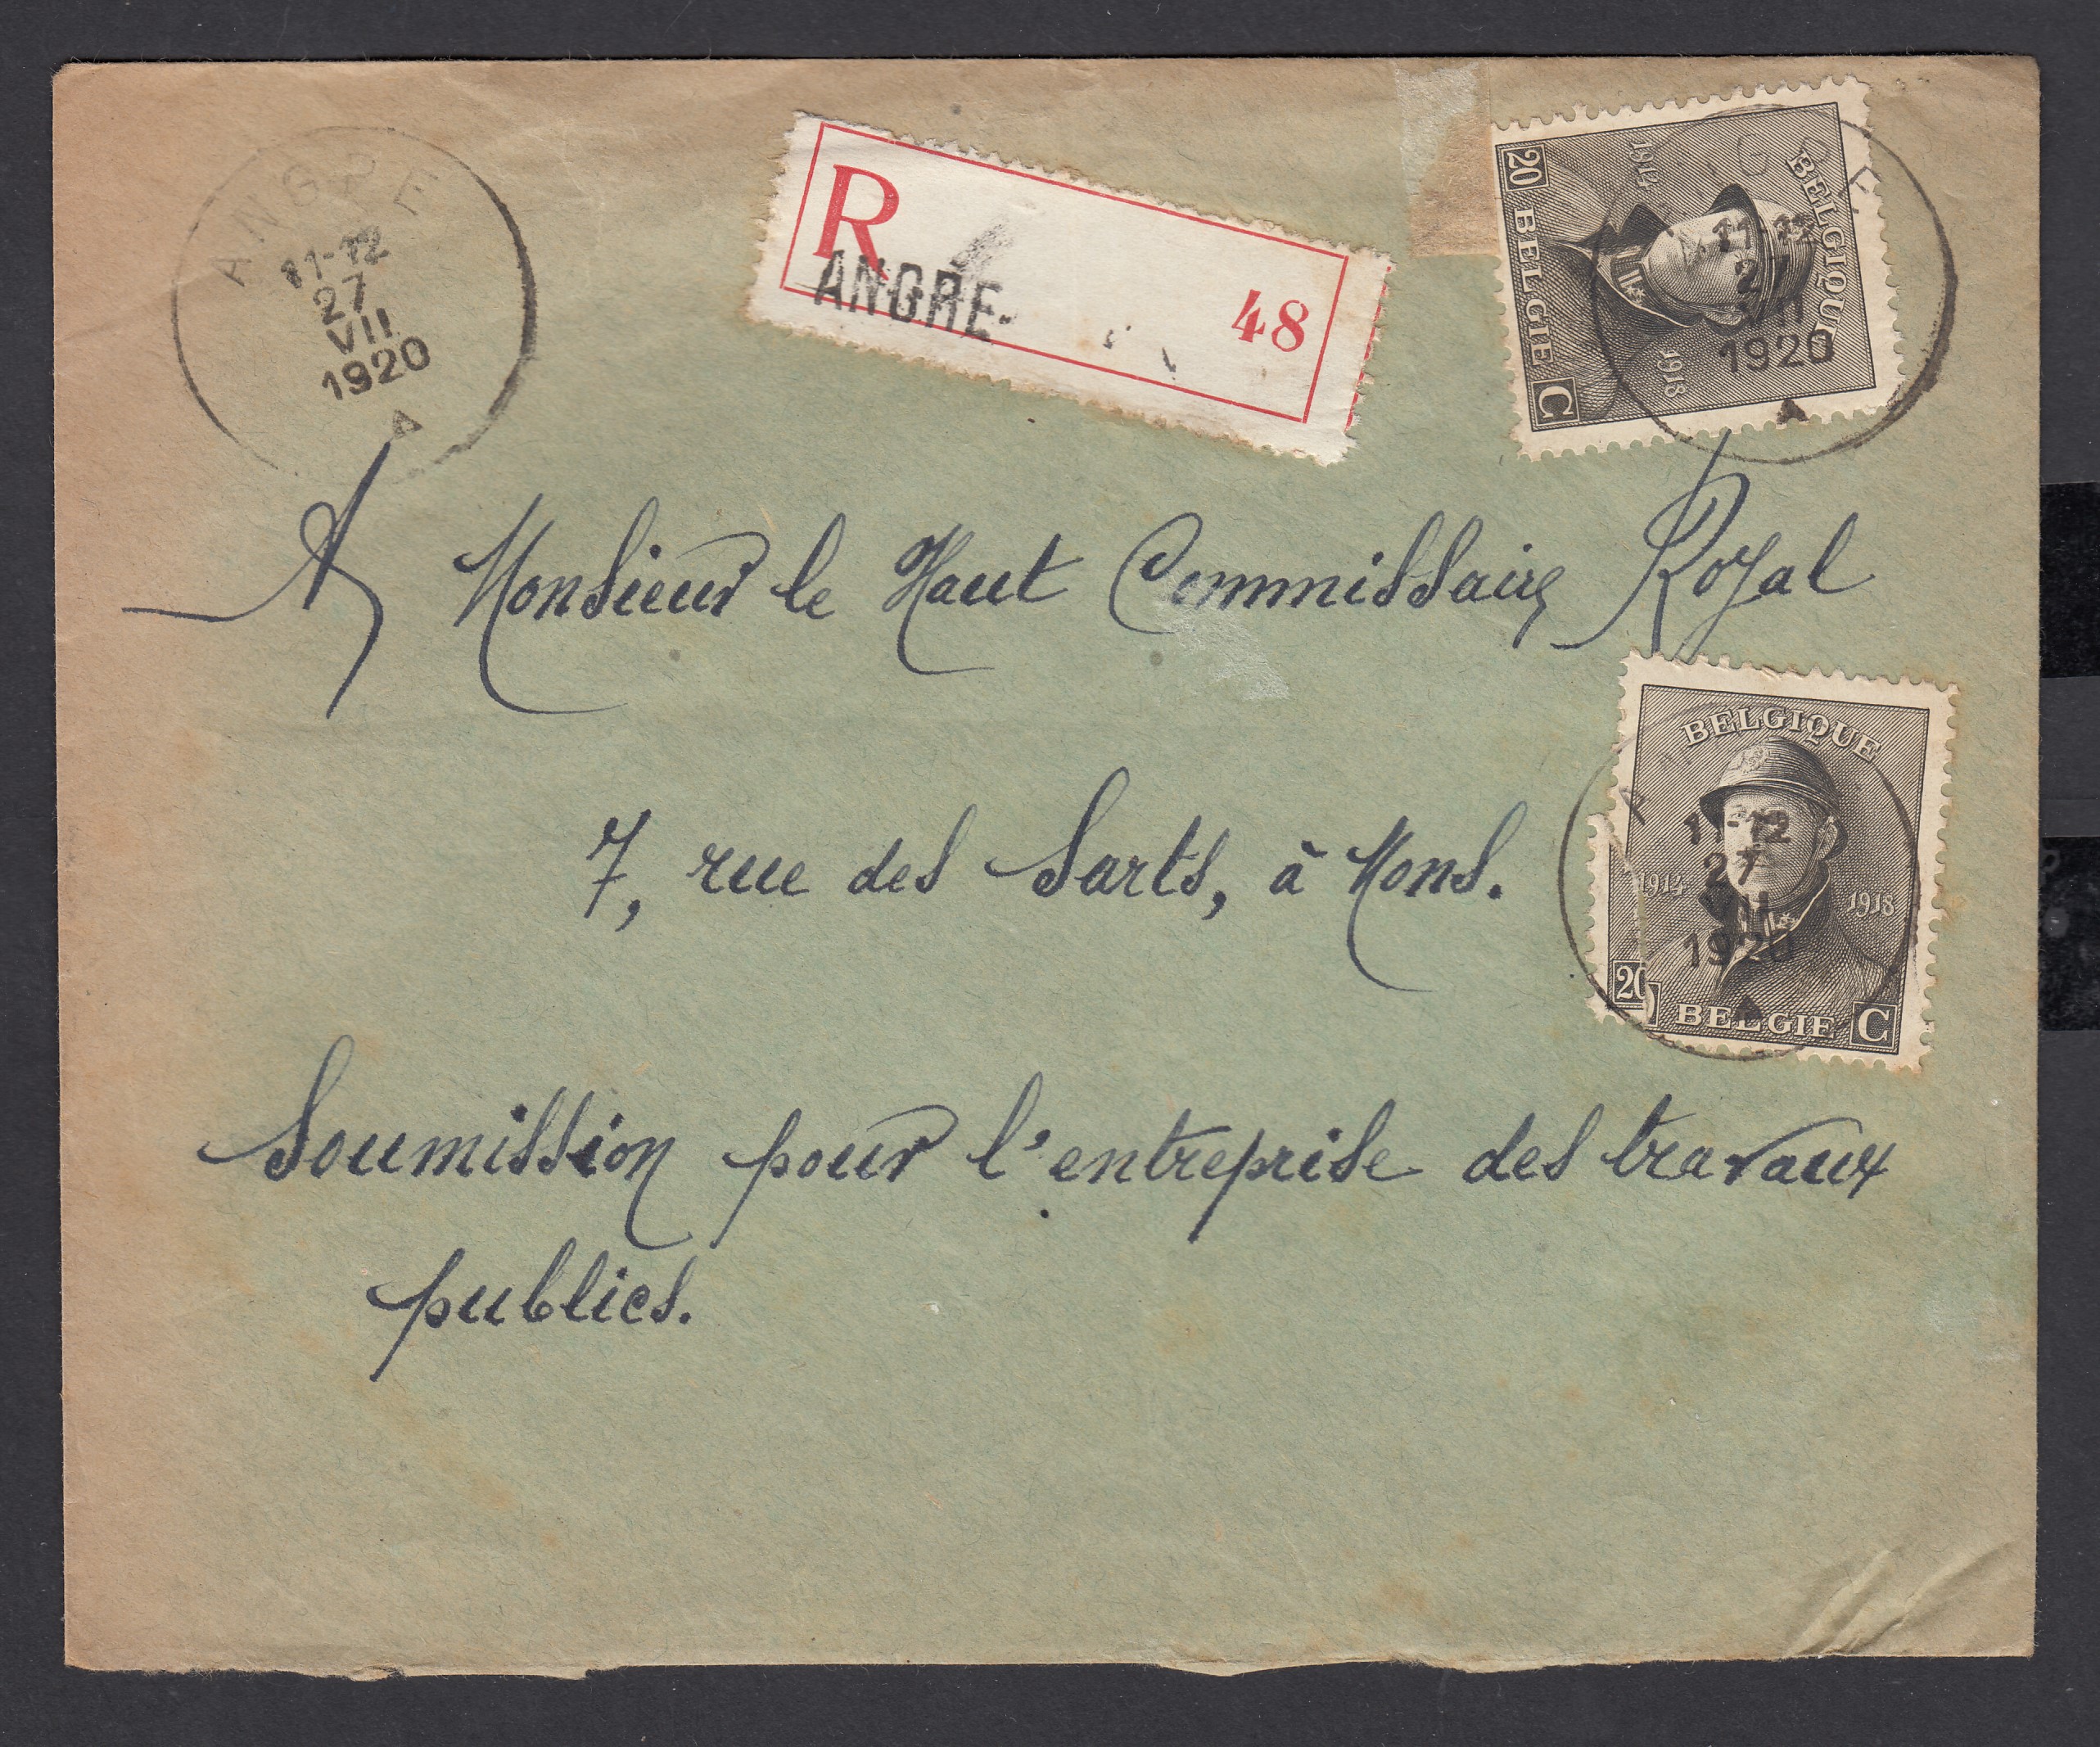 ANGRE
11-12
27
VII
1920
A
R
ANGRE
48
BELGIQUE
1914 1918
20 BELGIE C
11-12
27
VII
1920
A
A Monsieur le Haut Commissaire Royal
7, rue des Sarts, à Mons.
BELGIQUE
1914 1918
20 BELGIE C
11-12
27
VII
1920
A
Soumission pour l'entreprise des travaux
publics.